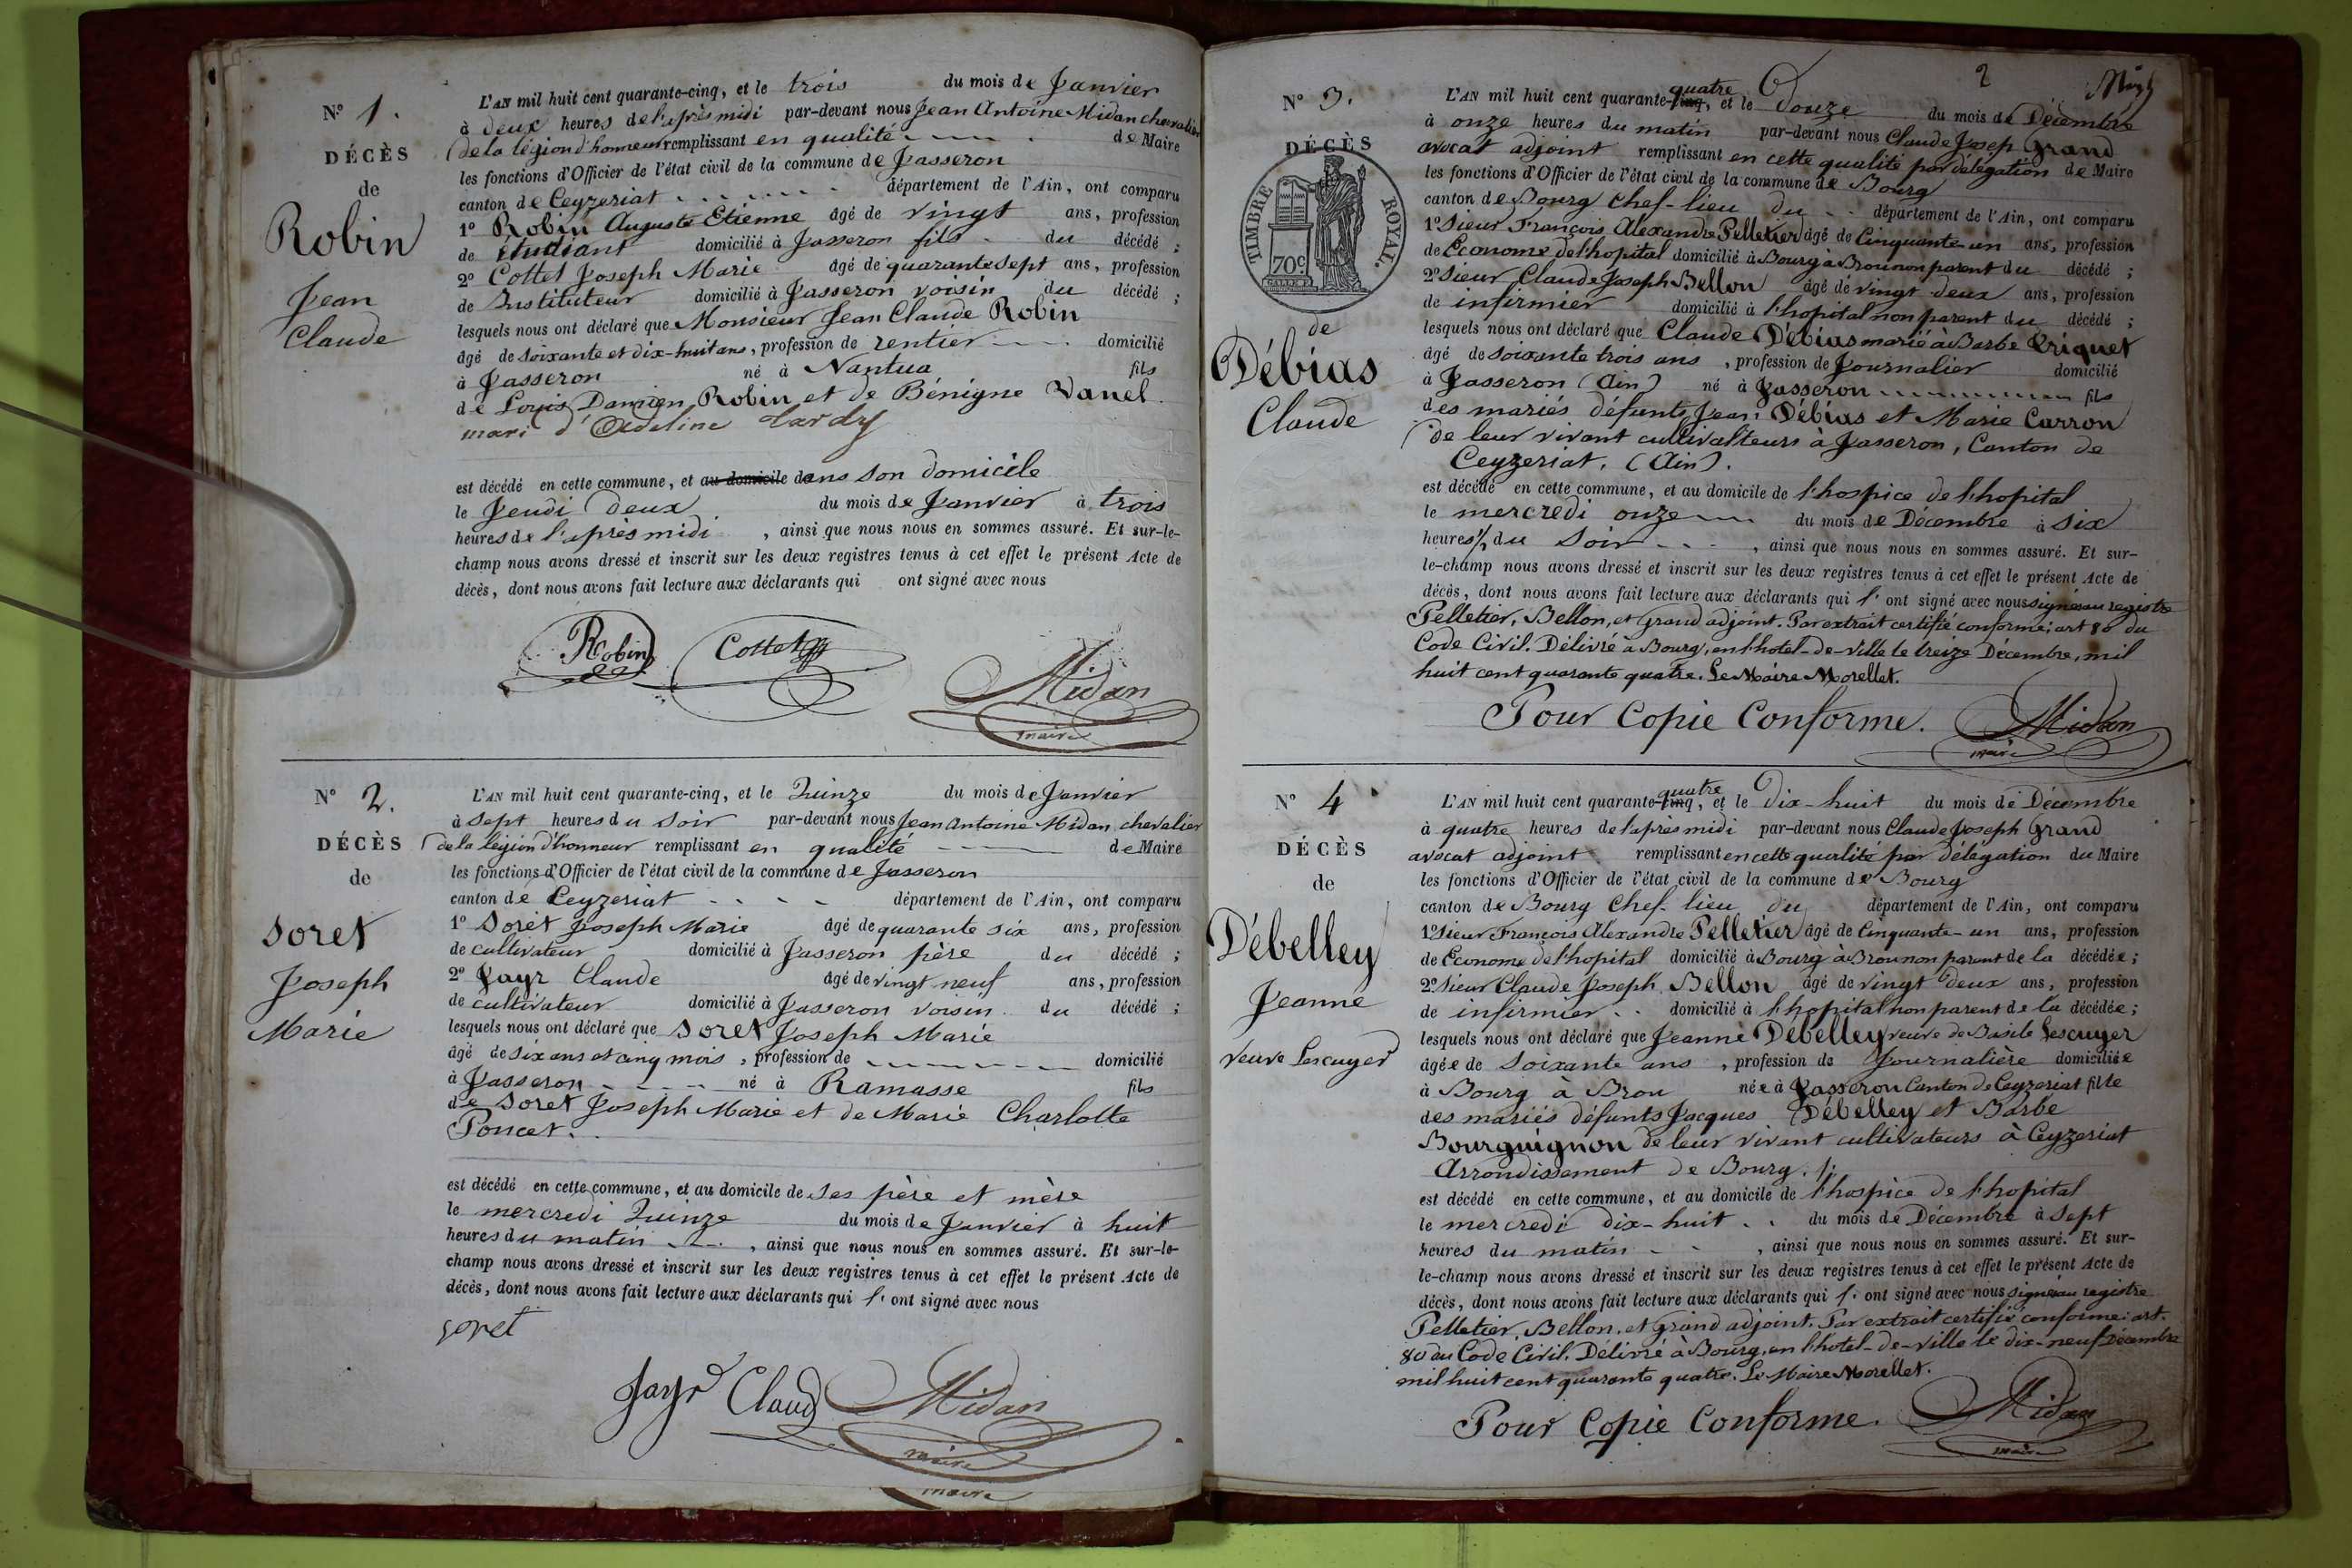 N° 1.
DÉCÈS
de
Robin
Jean
Claude
L'AN mil huit cent quarante-cinq, et le trois du mois de Janvier
à deux heures de l'après midi par-devant nous Jean Antoine Midan chevalier
de la légion d'honneur remplissant en qualité de Maire
les fonctions d'Officier de l'état civil de la commune de Jasseron
canton de Ceyzeriat département de l'Ain, ont comparu
1° Robin Auguste Etienne âgé de vingt ans, profession
de étudiant domicilié à Jasseron fils du décédé ;
2° Cottet Joseph Marie âgé de quarante sept ans, profession
de Instituteur domicilié à Jasseron voisin du décédé ;
lesquels nous ont déclaré que Monsieur Jean Claude Robin
âgé de soixante et dix-huit ans, profession de rentier domicilié
à Jasseron né à Nantua fils
de Louis Damien Robin et de Bénigne Vanel
mari d'Adeline Tardy
est décédé en cette commune, et au domicile dans son domicile
le Jeudi deux du mois de Janvier à trois
heures de l'après midi, ainsi que nous nous en sommes assuré. Et sur-le-
champ nous avons dressé et inscrit sur les deux registres tenus à cet effet le présent Acte de
décès, dont nous avons fait lecture aux déclarants qui ont signé avec nous
Robin Cottet
Midan
maire
N° 2.
DÉCÈS
de
Soret
Joseph
Marie
L'AN mil huit cent quarante-cinq, et le Quinze du mois de Janvier
à sept heures du soir par-devant nous Jean Antoine Midan chevalier
de la légion d'honneur remplissant en qualité de Maire
les fonctions d'Officier de l'état civil de la commune de Jasseron
canton de Ceyzeriat département de l'Ain, ont comparu
1° Soret Joseph Marie âgé de quarante six ans, profession
de cultivateur domicilié à Jasseron père du décédé ;
2° Jayr Claude âgé de vingt neuf ans, profession
de cultivateur domicilié à Jasseron voisin du décédé ;
lesquels nous ont déclaré que Soret Joseph Marie
âgé de six ans et cinq mois, profession de domicilié
à Jasseron né à Ramasse fils
de Soret Joseph Marie et de Marie Charlotte
Poncet.
est décédé en cette commune, et au domicile de ses père et mère
le mercredi Quinze du mois de Janvier à huit
heures du matin, ainsi que nous nous en sommes assuré. Et sur-le-
champ nous avons dressé et inscrit sur les deux registres tenus à cet effet le présent Acte de
décès, dont nous avons fait lecture aux déclarants qui l' ont signé avec nous
soret
Jayr Claud Midan
maire
maire
2
N° 3.
DÉCÈS
TIMBRE ROYAL.
70c
de
Débias
Claude
quatre
L'AN mil huit cent quarante-cinq, et le Douze du mois de Décembre
à onze heures du matin par-devant nous Claude Josep Grand
avocat adjoint remplissant en cette qualité par délégation de Maire
les fonctions d'Officier de l'état civil de la commune de Bourg
canton de Bourg Chef-lieu du département de l'Ain, ont comparu
1° Sieur François Alexandre Pelletier âgé de Cinquante un ans, profession
de Econome de l'hopital domicilié à Bourg à Brou non parent du décédé ;
2° Sieur Claude Joseph Bellon âgé de vingt deux ans, profession
de infirmier domicilié à l'hopital non parent du décédé ;
lesquels nous ont déclaré que Claude Débias marié à Barbe Briquet
âgé de soixante trois ans, profession de Journalier domicilié
à Jasseron (Ain) né à Jasseron fils
des mariés défunts Jean Débias et Marie Carron
de leur vivant cultivalteurs à Jasseron, Canton de
Ceyzeriat, (Ain).
est décédé en cette commune, et au domicile de l'hospice de l'hopital
le mercredi onze du mois de Décembre à six
heures ½ du soir, ainsi que nous nous en sommes assuré. Et sur-
le-champ nous avons dressé et inscrit sur les deux registres tenus à cet effet le présent Acte de
décès, dont nous avons fait lecture aux déclarants qui l' ont signé avec nous signés au registre
Pelletier, Bellon, et Grand adjoint. Par extrait certifié conforme; art 80 du
Code Civil. Délivré à Bourg, en l'hotel-de-ville le treize Décembre, mil
huit cent quarante quatre. Le Maire Morellet.
Pour Copie Conforme. Midan
maire
N° 4
DÉCÈS
de
Débelley
Jeanne
veuve Lescuyer
quatre
L'AN mil huit cent quarante-cinq, et le Dix-huit du mois de Décembre
à quatre heures de l'après midi par-devant nous Claude Joseph Grand
avocat adjoint remplissant en cette qualité par délégation du Maire
les fonctions d'Officier de l'état civil de la commune de Bourg
canton de Bourg Chef-lieu du département de l'Ain, ont comparu
1° Sieur François Alexandre Pelletier âgé de Cinquante-un ans, profession
de Econome de l'hopital domicilié à Bourg à Brou non parent de la décédée ;
2° Sieur Claude Joseph Bellon âgé de vingt deux ans, profession
de infirmier domicilié à l'hopital non parent de la décédée ;
lesquels nous ont déclaré que Jeanne Débelley veuve de Basile Lescuyer
âgée de Soixante ans, profession de Journalière domiciliée
à Bourg à Brou née à Jasseron Canton de Ceyzeriat fille
des mariés défunts Jacques Débelley et Barbe
Bourguignon de leur vivant cultivateurs à Ceyzeriat
Arrondissement de Bourg.
est décédé en cette commune, et au domicile de l'hospice de l'hopital
le mercredi dix-huit du mois de Décembre à sept
heures du matin, ainsi que nous nous en sommes assuré. Et sur-
le-champ nous avons dressé et inscrit sur les deux registres tenus à cet effet le présent Acte de
décès, dont nous avons fait lecture aux déclarants qui l' ont signé avec nous signés au registre
Pelletier, Bellon, et grand adjoint. Par extrait certifié conforme: art.
80 du Code Civil. Délivré à Bourg, en l'hotel-de-ville le dix-neuf Décembre
mil huit cent quarante quatre. Le Maire Morellet.
Pour Copie Conforme. Midan
maire